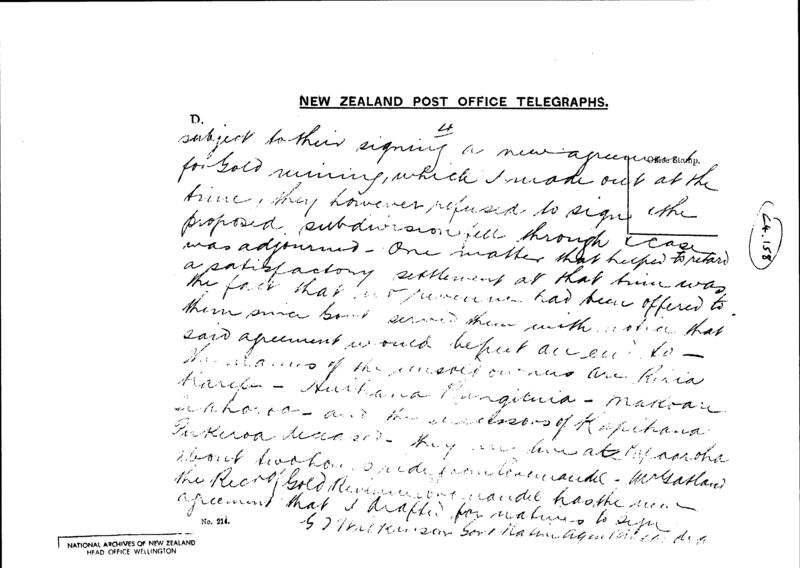 NEW ZEALAND POST OFFICE TELEGRAPHS.
D.
4
Office Stamp.
subject to their signing a new agreement
for Gold mining, which I made out at the
time, they however refused to sign & the
proposed subdivision fell through & case
was adjourned - One matter that helped to retard
a satisfactory settlement at that time was
the fact that no revenue had been offered to
them since Govt served them with notice that
said agreement would be put an end to -
The names of the unsold owners are
and the successors of
deceased - they live at
about two hours ride from Coromandel - Mr Gatland
the Recr of Gold Revenue Coromandel has the new
agreement that I drafted for natives to sign
G T Wilkinson Govt Native Agent
No. 214.
L4.158
NATIONAL ARCHIVES OF NEW ZEALAND
HEAD OFFICE WELLINGTON